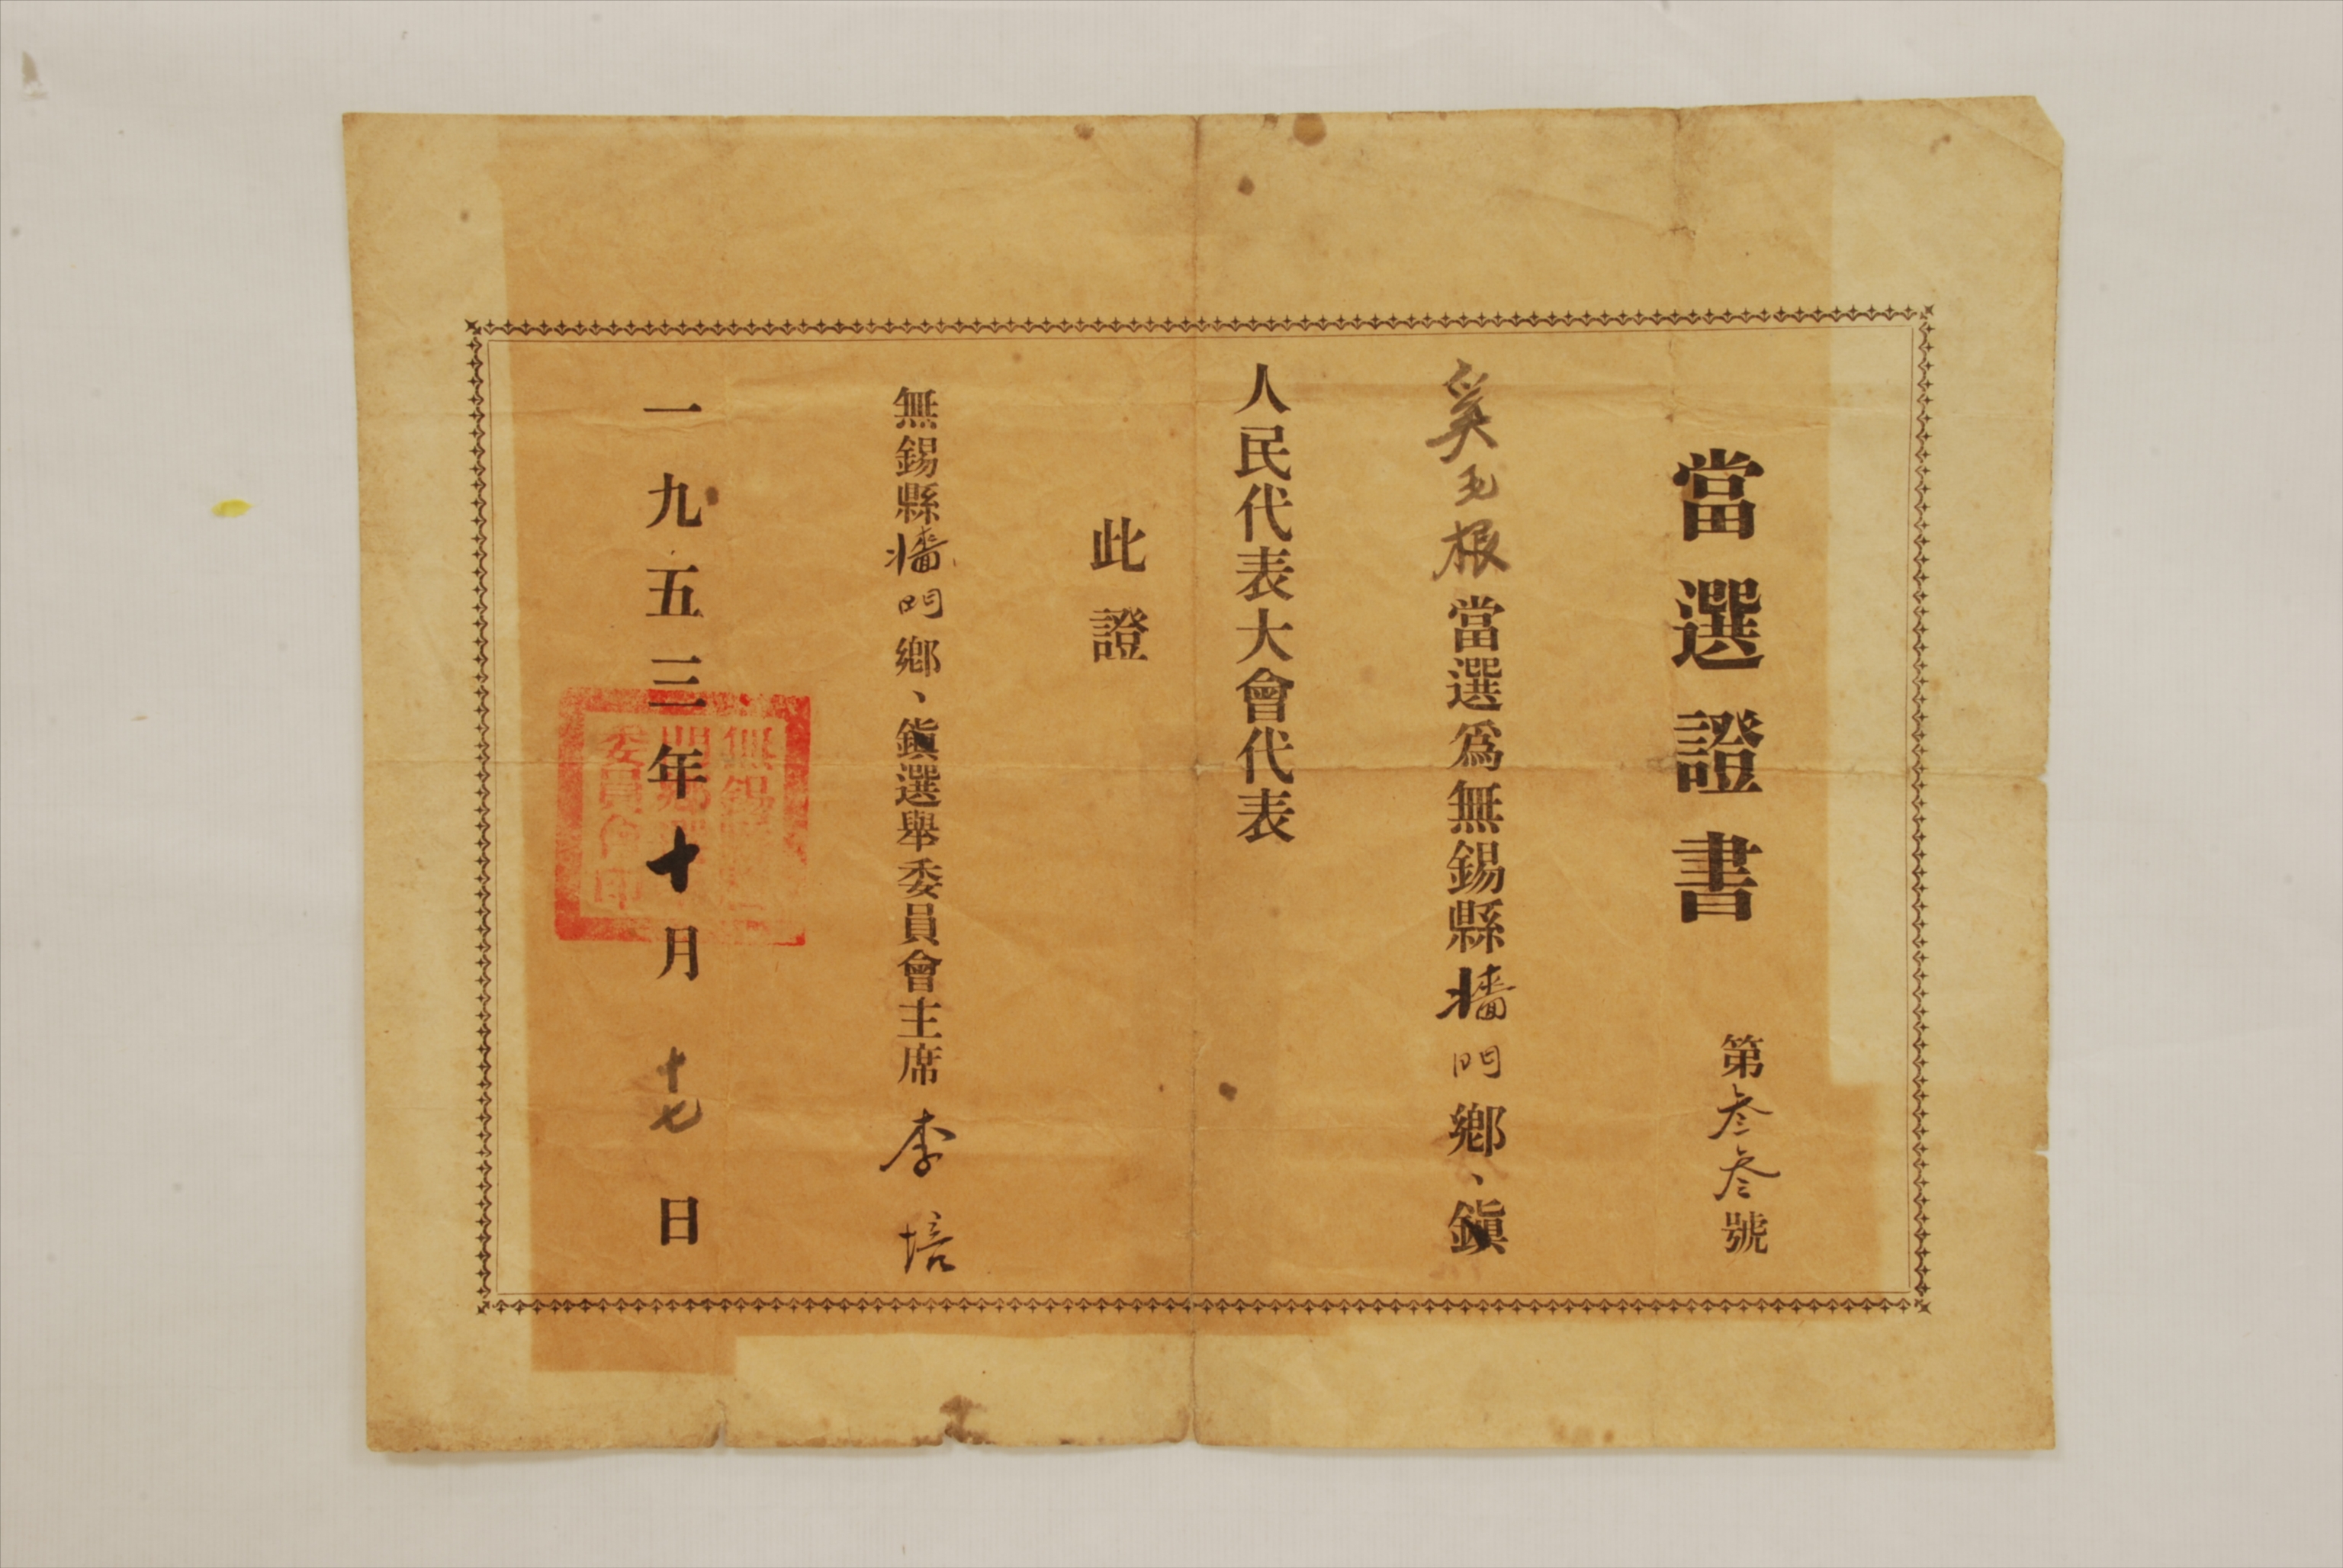 當選證書
第叁叁號
奚毛根當選爲無錫縣牆門鄉、鎮
人民代表大會代表
此證
無錫縣牆門鄉、鎮選舉委員會主席 李培
一九五三年十月十七日
無錫
門鄉選
委員會印